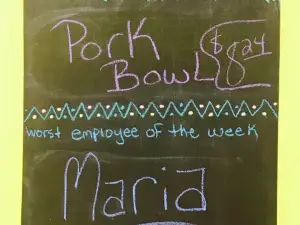 Pork
Bowl $8.24
worst employee of the week
Maria